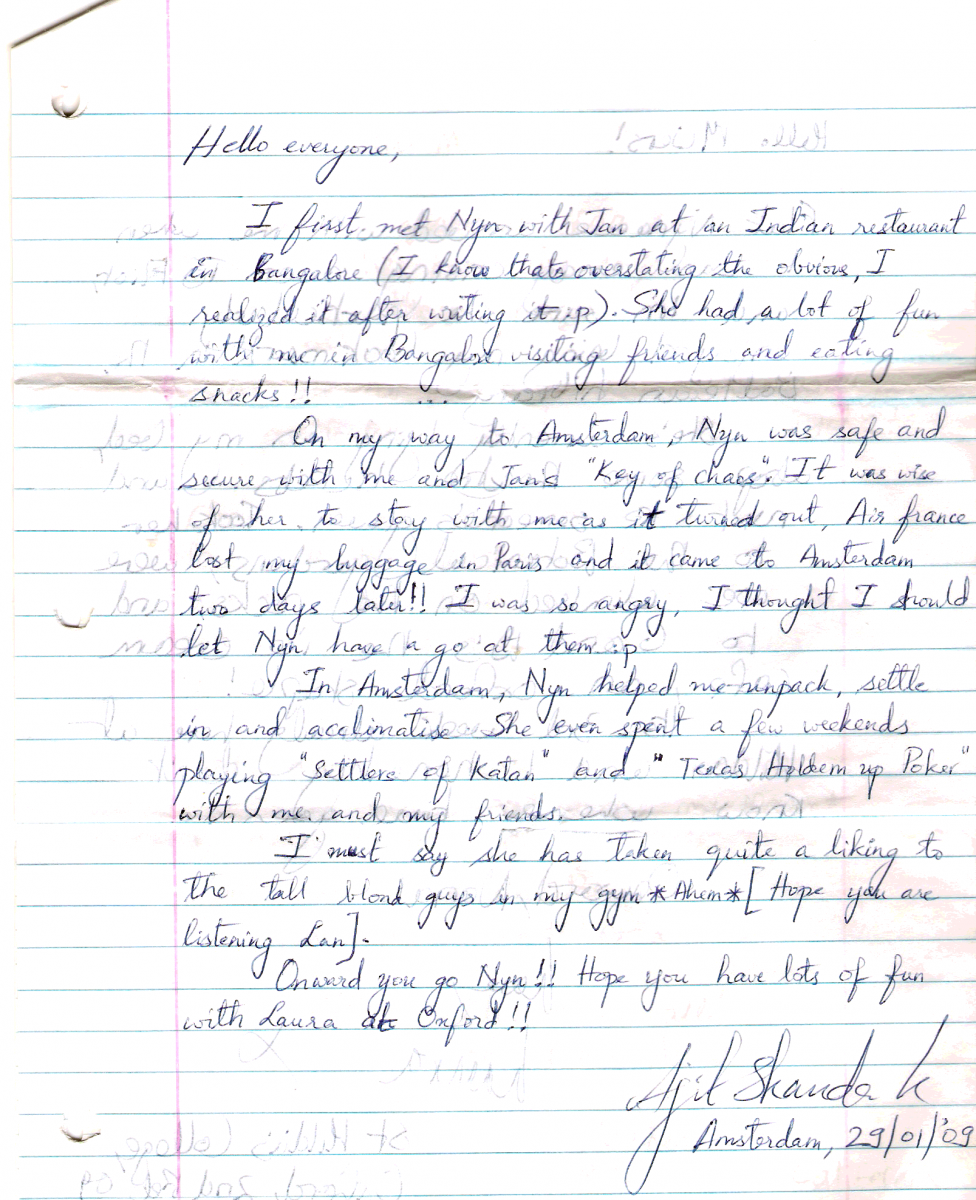 Hello everyone,
I first met Nyn with Jan at an Indian restaurant
in Bangalore (I know thats overstating the obvious, I
realized it after writing it :p). She had a lot of fun
with me in Bangalore visiting friends and eating
snacks!!
On my way to Amsterdam, Nyn was safe and
secure with me and Jan's "Key of chaos". It was wise
of her to stay with me as it turned out, Air france
lost my luggage in Paris and it came to Amsterdam
two days later!! I was so angry, I thought I should
let Nyn have a go at them :p
In Amsterdam, Nyn helped me unpack, settle
in and acclimatise. She even spent a few weekends
playing "Settlers of Katan" and "Texas Holdem up Poker"
with me and my friends.
I must say she has taken quite a liking to
the tall blond guys in my gym *Ahem* [Hope you are
listening Lan].
Onward you go Nyn!! Hope you have lots of fun
with Laura at Oxford!!
Ajit Skanda K
Amsterdam, 29/01/'09